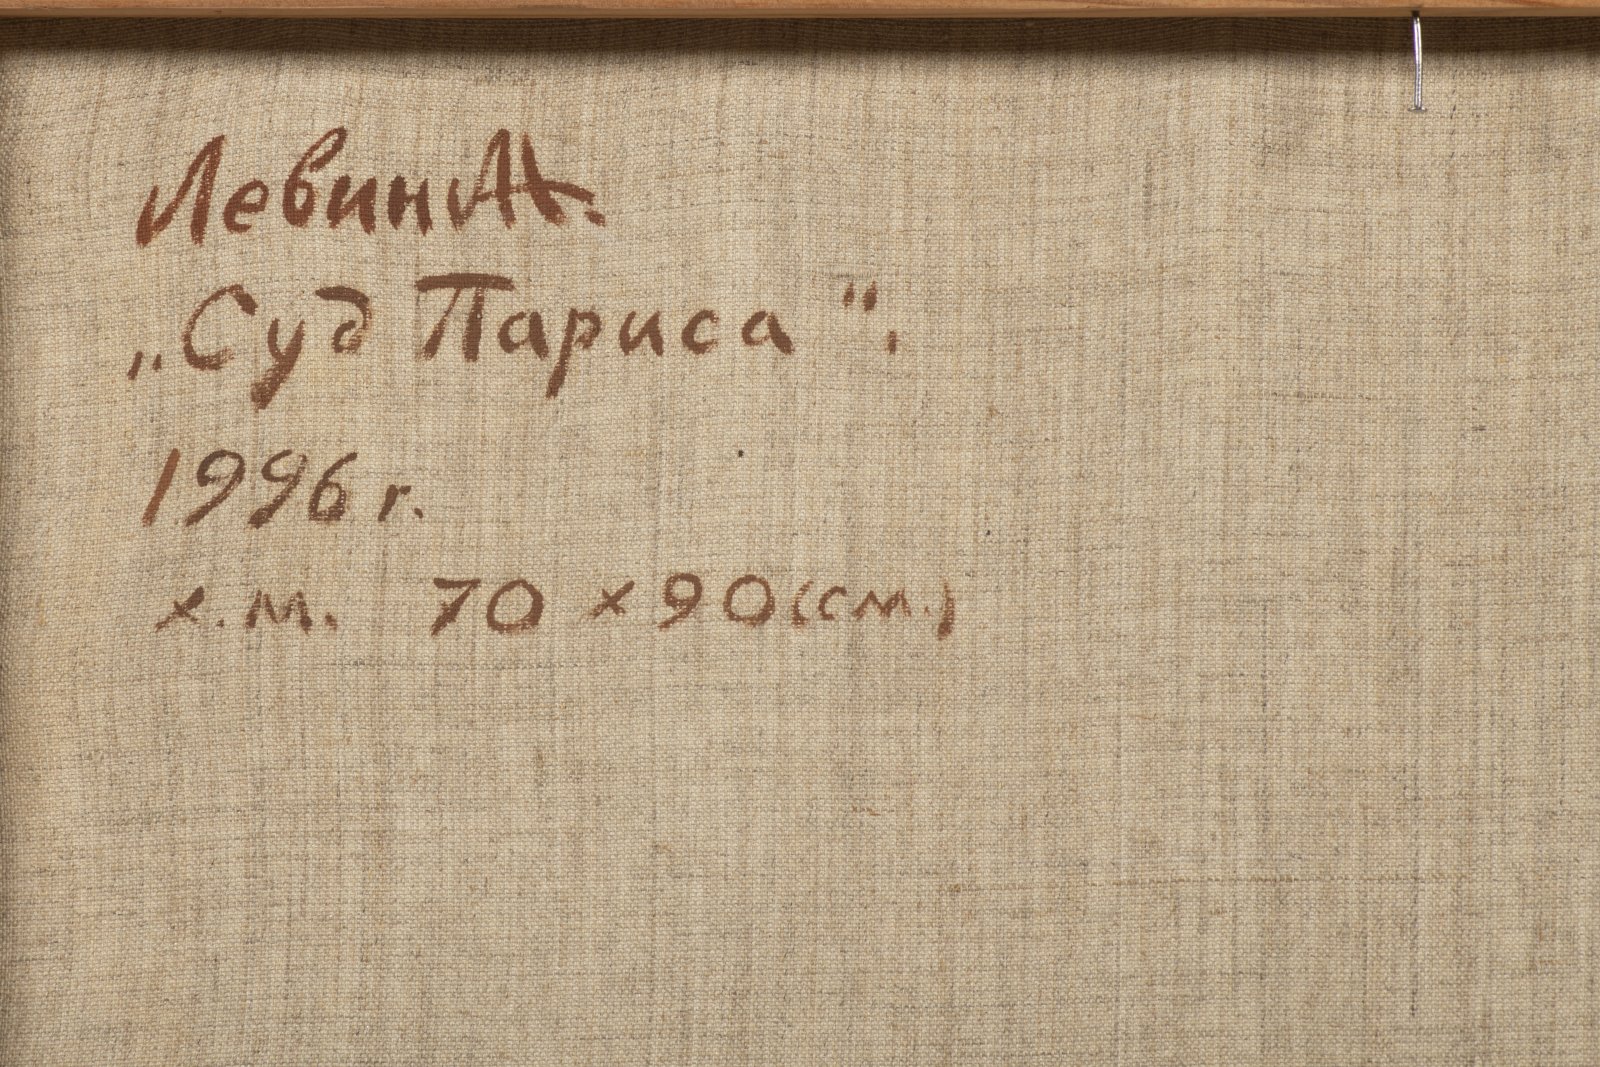 Левин А.
„Суд Париса".
1996 г.
х.м. 70 х 90 (см.)